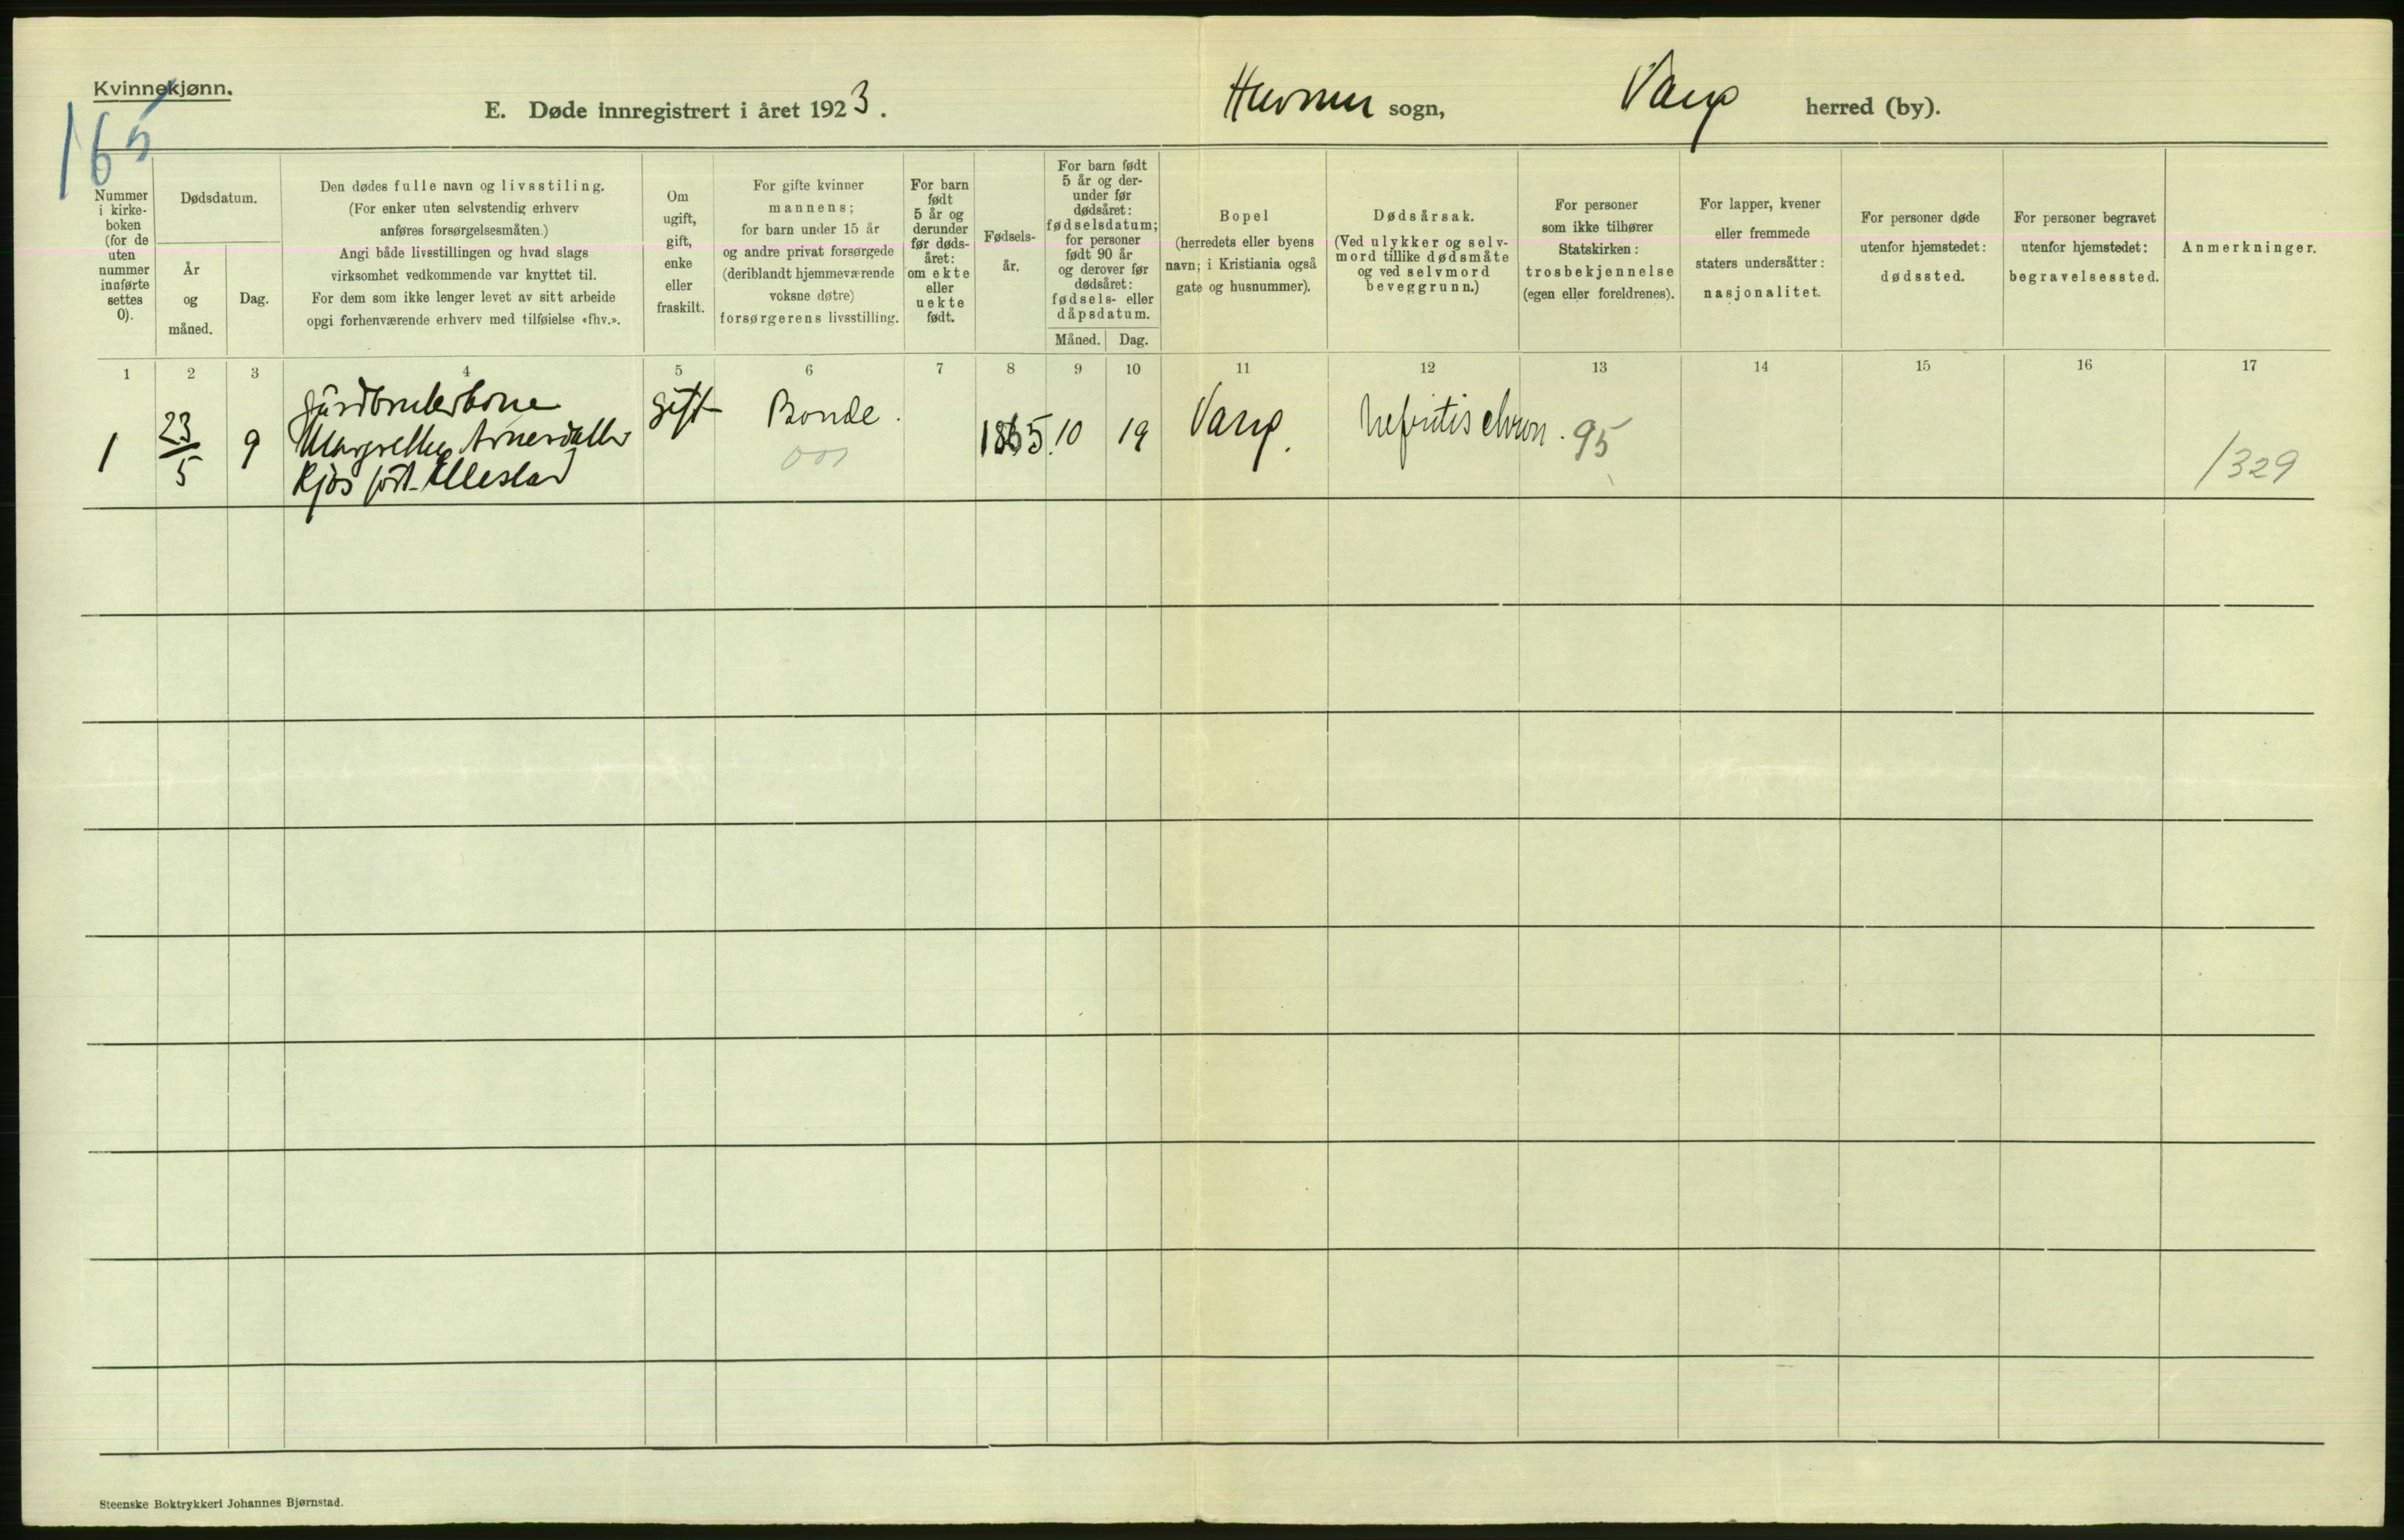 Kvinnekjønn.
165
E. Døde innregistrert i året 1923.
Hurum sogn, Vang herred (by).
Nummer i kirke-boken (for de uten nummer innførte settes 0).
Dødsdatum.
År og måned.
Dag.
Den dødes fulle navn og livsstiling.
(For enker uten selvstendig erhverv
anføres forsørgelsesmåten.)
Angi både livsstillingen og hvad slags
virksomhet vedkommende var knyttet til.
For dem som ikke lenger levet av sitt arbeide
opgi forhenværende erhverv med tilføielse «fhv.».
Om
ugift,
gift,
enke
eller
fraskilt.
For gifte kvinner
mannens;
for barn under 15 år
og andre privat forsørgede
(deriblandt hjemmeværende
voksne døtre)
forsørgerens livsstilling.
For barn
født
5 år og
derunder
før døds-
året:
om ekte
eller
uekte
født.
Fødsels-
år.
For barn født
5 år og der-
under før
dødsåret:
fødselsdatum;
for personer
født 90 år
og derover før
dødsåret:
fødsels- eller
dåpsdatum.
Måned. Dag.
Bopel
(herredets eller byens
navn; i Kristiania også
gate og husnummer).
Dødsårsak.
(Ved ulykker og selv-
mord tillike dødsmåte
og ved selvmord
beveggrunn.)
For personer
som ikke tilhører
Statskirken:
trosbekjennelse
(egen eller foreldrenes).
For lapper, kvener
eller fremmede
staters undersåtter:
nasjonalitet.
For personer døde
utenfor hjemstedet:
dødssted.
For personer begravet
utenfor hjemstedet:
begravelsessted.
Anmerkninger.
1 2 3 4 5 6 7 8 9 10 11 12 13 14 15 16 17
1 23/5 9
Margrethe Arnesdatter
Kjøs født Ellestad
gift Bonde. 1865. 10 19 Vang. Nefritis chron. 95
001
1329
Steenske Boktrykkeri Johannes Bjørnstad.